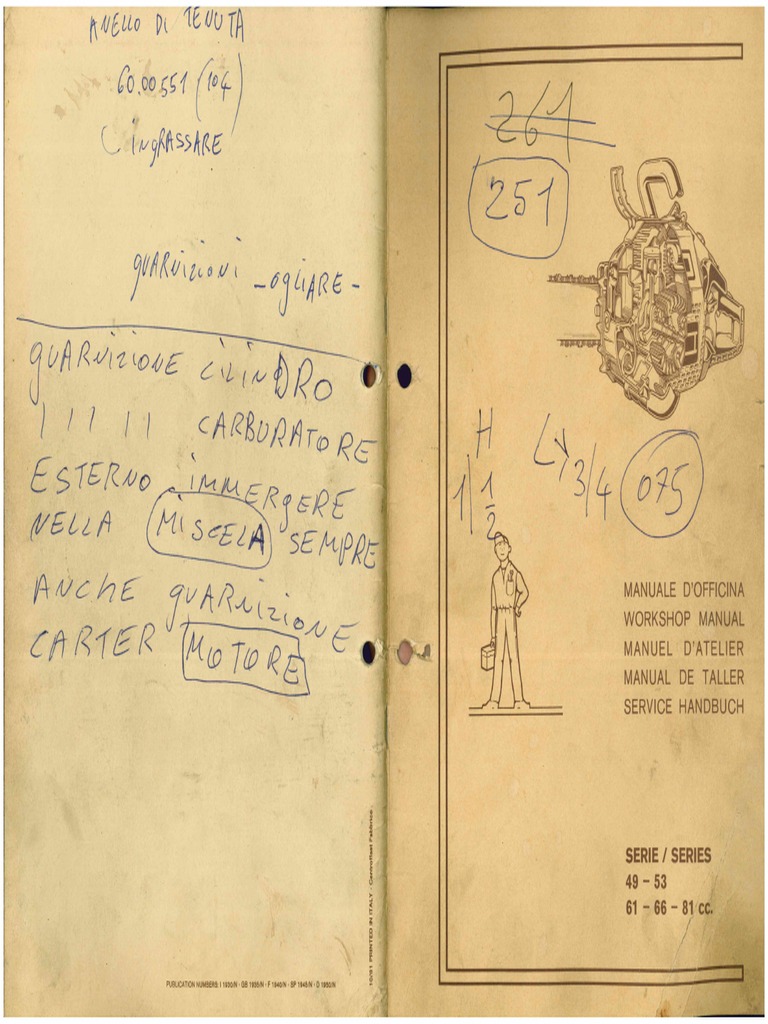 ANELLO DI TENUTA
60.00551 (104)
INGRASSARE
GUARNIZIONI -OGLIARE-
GUARNIZIONE CILINDRO
| | | | | CARBURATORE
ESTERNO IMMERGERE
NELLA MISCELA SEMPRE
ANCHE GUARNIZIONE
CARTER MOTORE
PUBLICATION NUMBERS: I 1930/N - GB 1935/N - F 1940/N - SP 1945/N - D 1950/N
10/81 PRINTED IN ITALY - Centroffset Fabbrico -
261
251
H L
1/ 1/2 3/4 075
MANUALE D'OFFICINA
WORKSHOP MANUAL
MANUEL D'ATELIER
MANUAL DE TALLER
SERVICE HANDBUCH
SERIE / SERIES
49 – 53
61 – 66 – 81 cc.